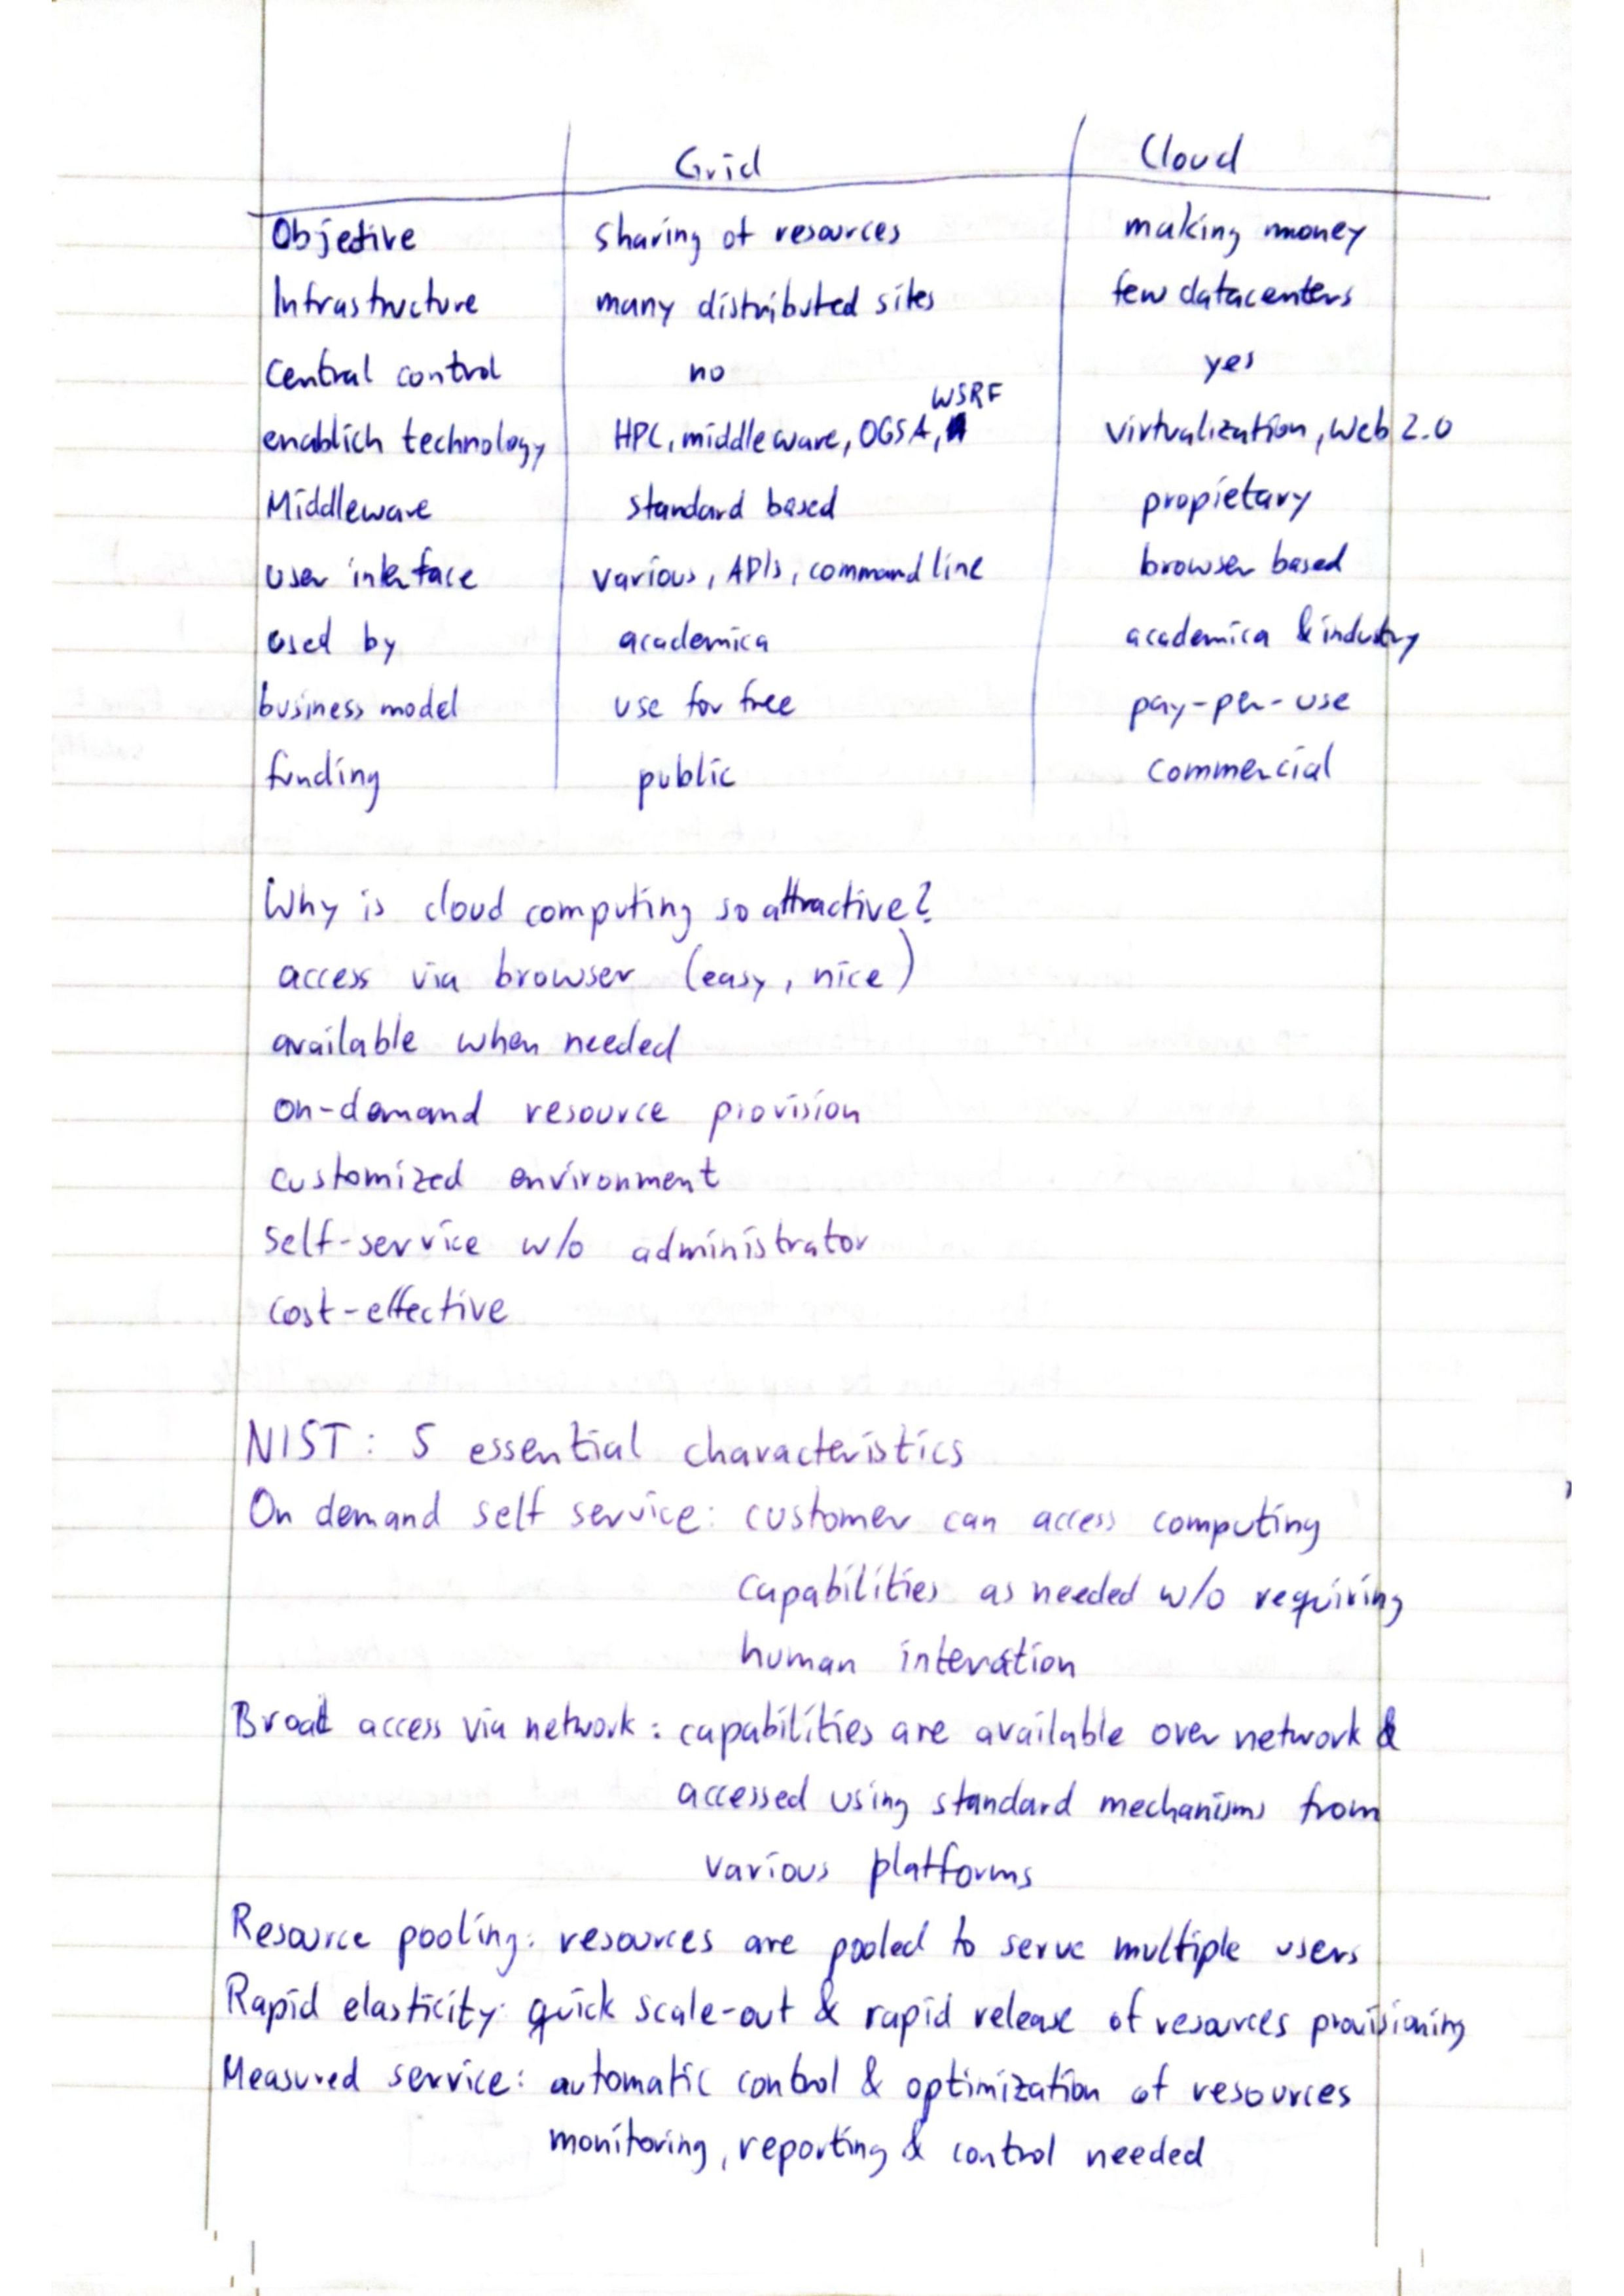 Grid Cloud
Objective sharing of resources making money
Infrastructure many distributed sites few datacenters
Central control no yes
enablich technology HPC, middleware, OGSA, WSRF virtualization, Web 2.0
Middleware standard based propietary
user interface various, APIs, command line browser based
used by academica academica & industry
business model use for free pay-per-use
funding public commercial
Why is cloud computing so attractive?
access via browser (easy, nice)
available when needed
on-demand resource provision
customized environment
self-service w/o administrator
cost-effective
NIST: 5 essential characteristics
On demand self service: customer can access computing
capabilities as needed w/o requiring
human interation
Broad access via network: capabilities are available over network &
accessed using standard mechanisms from
various platforms
Resource pooling: resources are pooled to serve multiple users
Rapid elasticity: quick scale-out & rapid release of resources provisioning
Measured service: automatic control & optimization of resources
monitoring, reporting & control needed